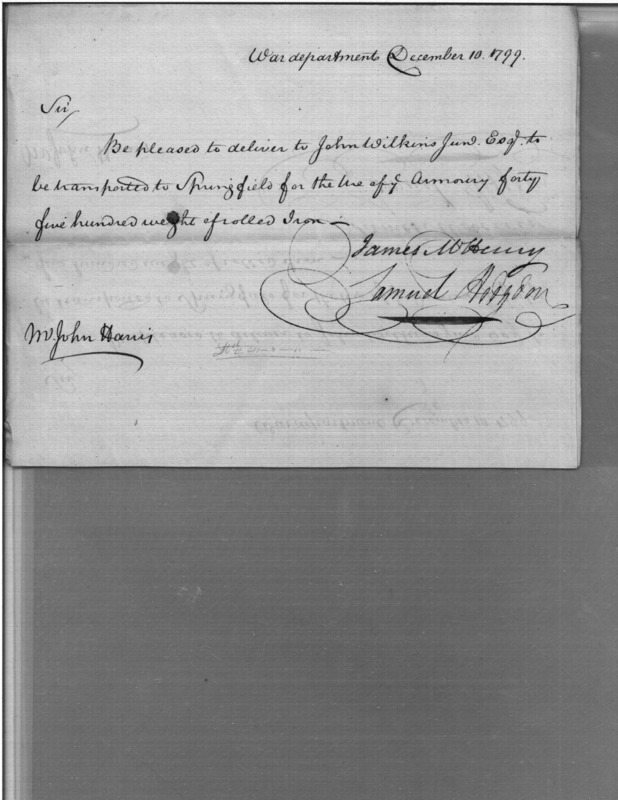 War department December 10. 1799.
Sir,
Be pleased to deliver to John Wilkins Junr. Esqr. to
be transported to Springfield for the Use of ye Armoury forty
five hundred weight of rolled Iron —
James McHenry
Samuel Hodgdon
Mr. John Harris